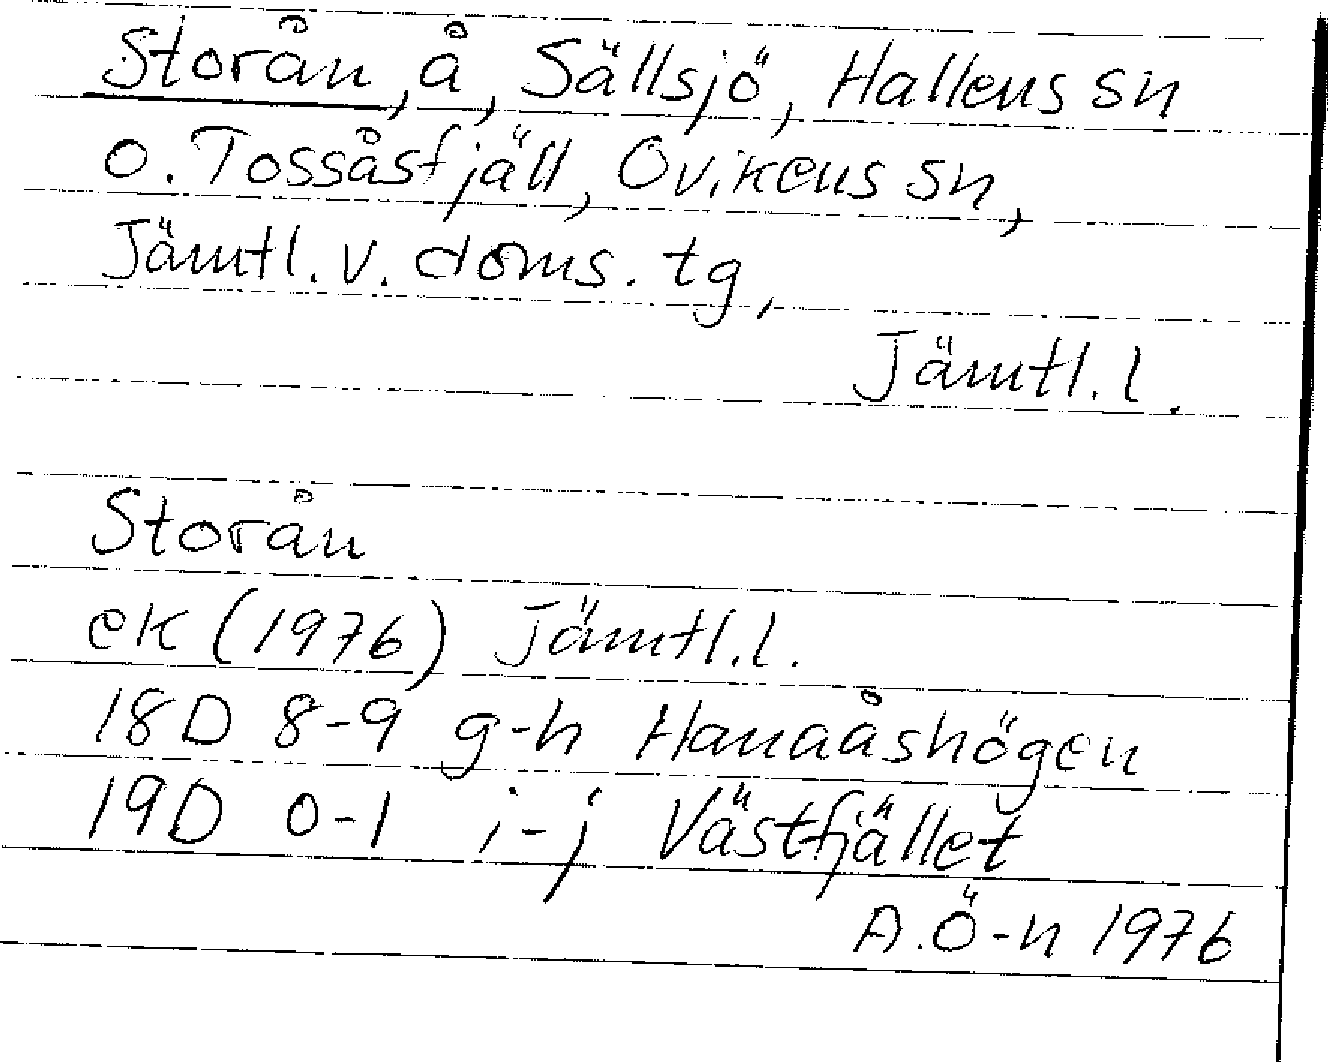 Storån, å, Sällsjö, Hallens sn
o. Tossåsfjäll, Ovikens sn,
Jämtl. v. doms. tg,
Jämtl. l.
Storån
ek (1976) Jämtl. l.
18D 8-9 g-h Hanaåshögen
19D 0-1 i-j Västfjället
A. Ö-n 1976